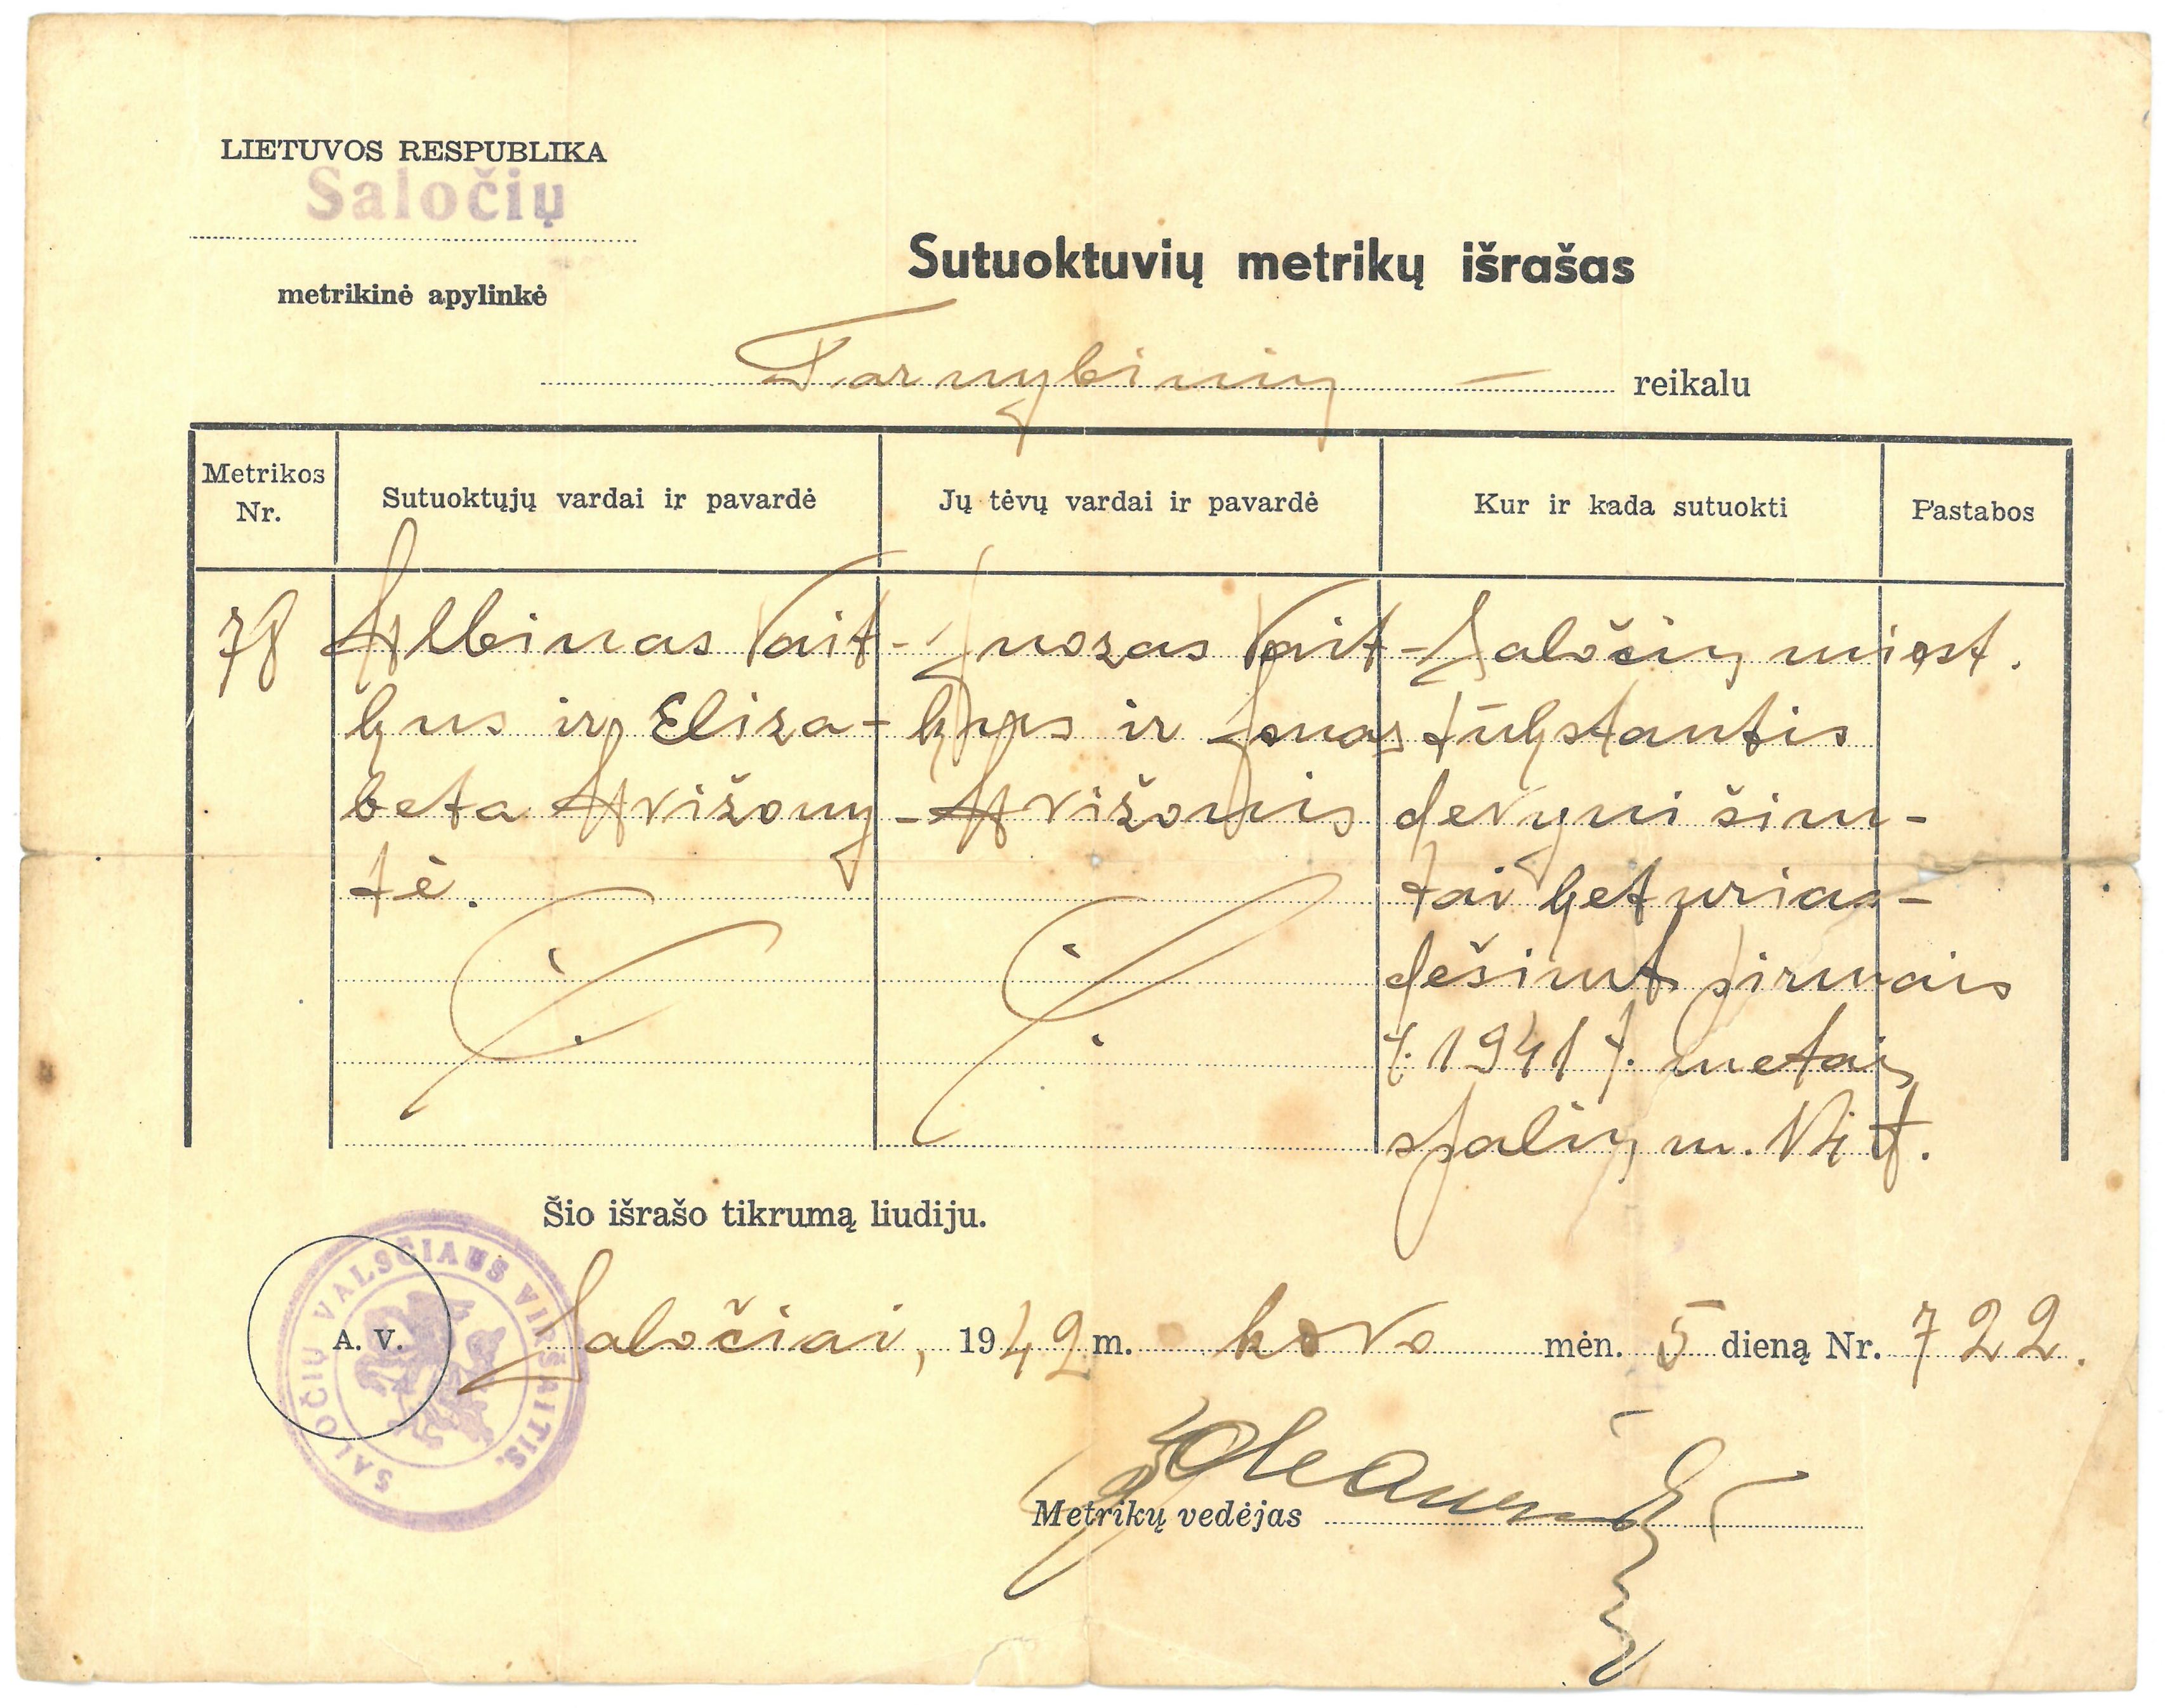 LIETUVOS RESPUBLIKA
Saločių
metrikinė apylinkė
Sutuoktuvių metrikų išrašas
Tarnybinių — reikalu
Metrikos Nr.
Sutuoktųjų vardai ir pavardė
Jų tėvų vardai ir pavardė
Kur ir kada sutuokti
Pastabos
78
Albinas Vait-
kus ir Eliza-
beta Avižony-
tė.
Juozas Vait-
kus ir Jonas
Avižonis
Saločių miest.
tūkstantis
devyni šim-
tai keturias-
dešimt pirmais
/:1941/. metais
spalių m.
Šio išrašo tikrumą liudiju.
A. V.
SALOČIŲ VALSČIAUS VIRŠAITIS.
Saločiai, 1942 m. kovo mėn. 5 dieną Nr. 722.
Metrikų vedėjas